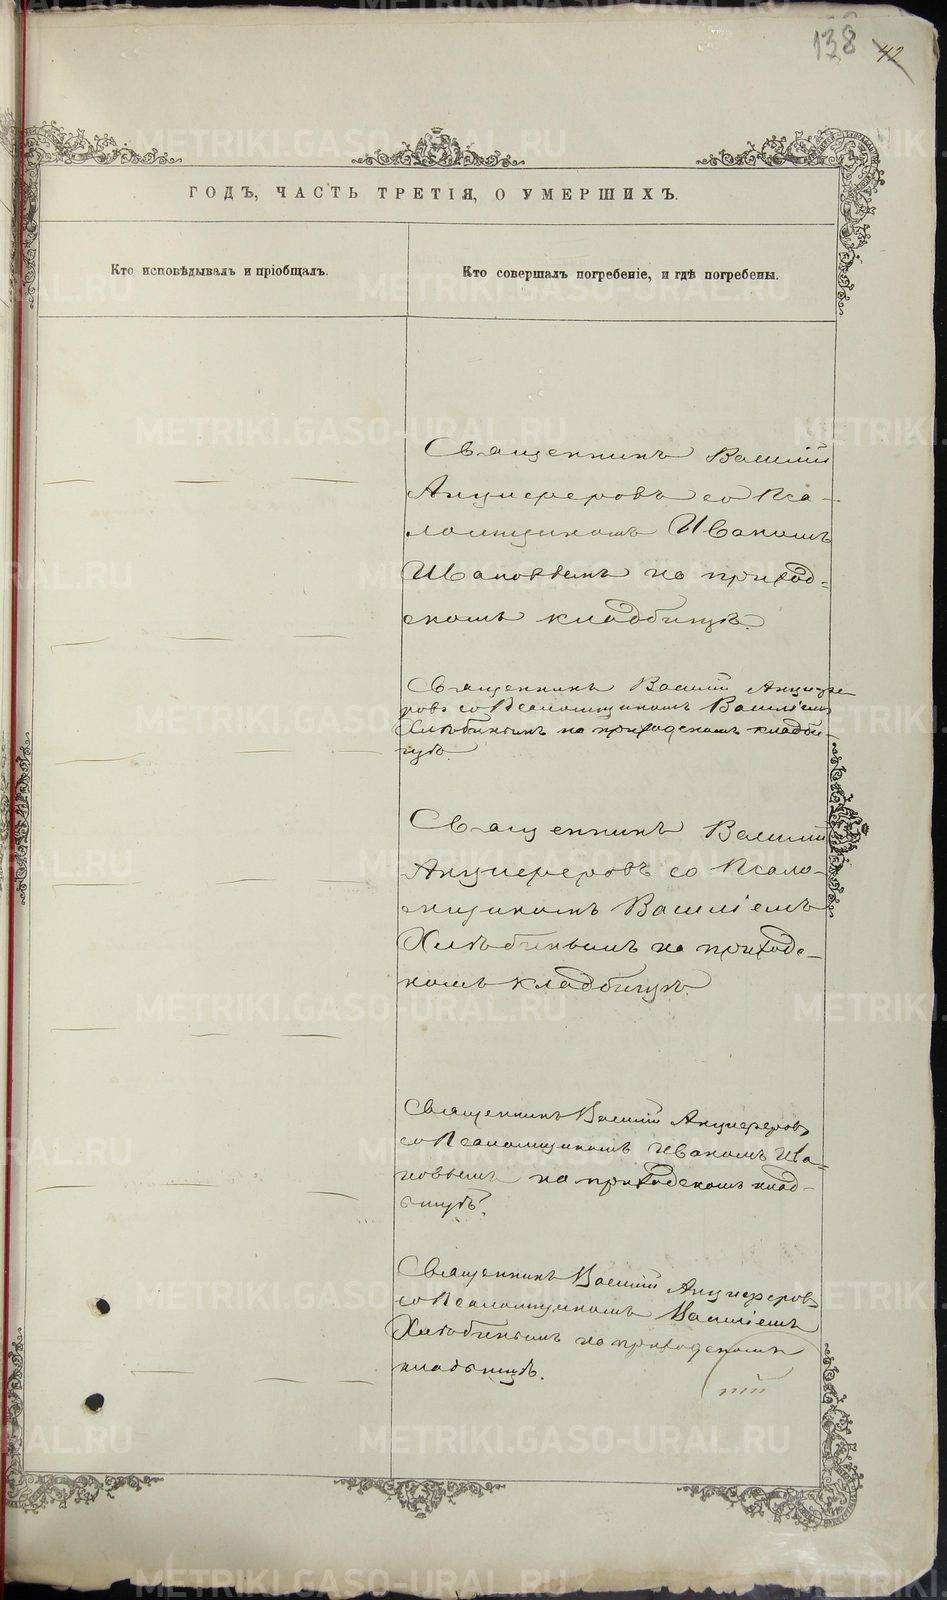 138 42
ГОДЪ, ЧАСТЬ ТРЕТІЯ, О УМЕРШИХЪ.
Кто исповѣдывалъ и пріобщалъ.
Кто совершалъ погребеніе, и гдѣ погребены.
Священникъ Василій
Анциферовъ со Пса-
ломщикомъ Иваномъ
Ивановымъ на приход-
скомъ кладбищѣ.
Священникъ Василій Анцифе-
ровъ со Псаломщикомъ Василіемъ
Хлѣбинымъ на приходскомъ кладби-
щѣ.
Священникъ Василій
Анциферовъ со Псало-
мщикомъ Василіемъ
Хлѣбинымъ на приходс-
комъ кладбищѣ.
Священникъ Василій Анциферовъ
со Псаломщикомъ Иваномъ Ива-
новымъ на приходскомъ клад-
бищѣ.
Священникъ Василій Анциферовъ
со Псаломщикомъ Василіемъ
Хлѣбинымъ на приходскомъ
кладбищѣ.
METRIKI.GASO-URAL.RU